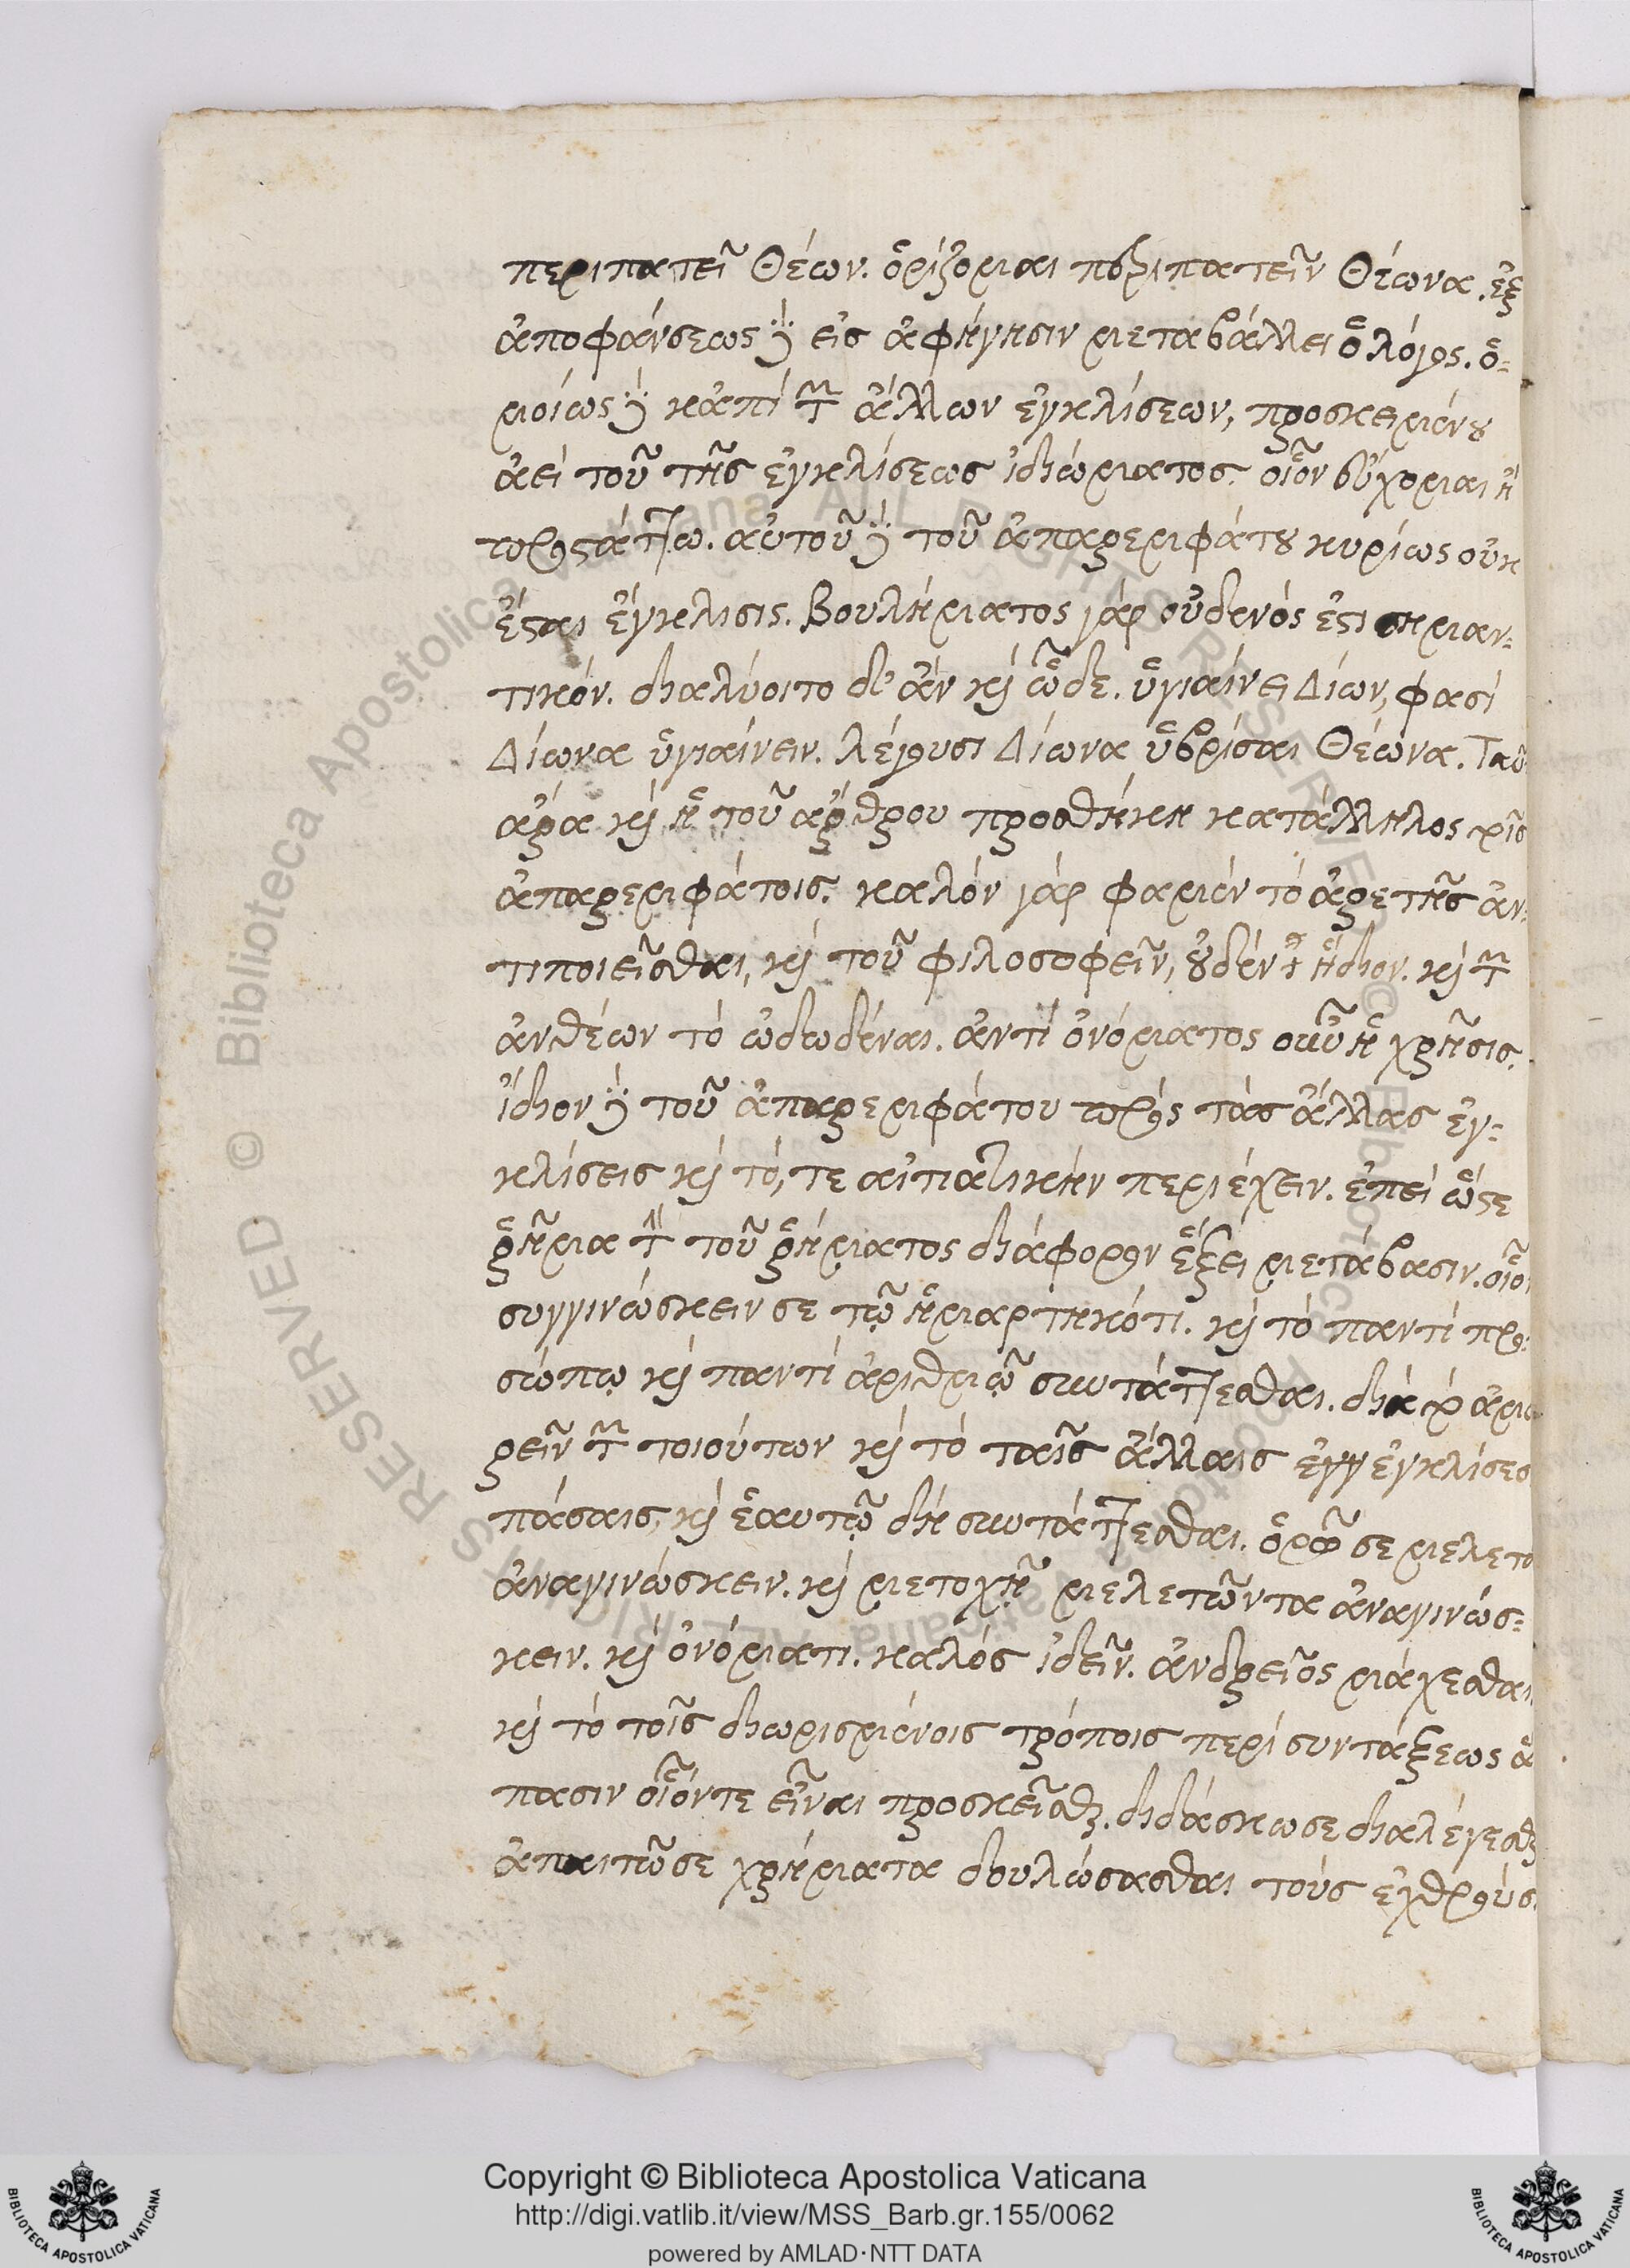 περιπατεῖ Θέων. ὁρίζομαι περιπατεῖν Θέωνα. ἐξ
ἀποφάνσεως δὲ εἰς ἀφήγησιν μεταβάλλει ὁ λόγος. ὁ-
μοίως δὲ κἀπὶ τῶν ἄλλων ἐγκλίσεων, προσκειμένου
ἀεὶ τοῦ τῆς ἐγκλίσεως ἰδιώματος. οἷον εὔχομαι ἢ
προστάττω. αὐτοῦ δὲ τοῦ ἀπαρεμφάτου κυρίως οὐκ
ἔσται ἔγκλισις. Βουλήματος γάρ οὐδενός ἐστι σημαν-
τικόν. διαλύοιτο δ' ἂν καὶ ὧδε. ὑγιαίνει Δίων, φασὶ
Δίωνα ὑγιαίνειν. λέγουσι Δίωνα ὑβρίσαι Θέωνα. Ταῦ
ἄρα καὶ ἡ τοῦ ἄρθρου προσθήκη κατάλληλος τοῖς
ἀπαρεμφάτοις. καλὸν γάρ φαμὲν τὸ ἀρετῆς ἀν-
τιποιεῖσθαι, καὶ τοῦ φιλοσοφεῖν, οὐδὲν ἥδιον. καὶ τῶν
ἀνθέων τὸ ὠδωδέναι. ἀντὶ ὀνόματος οὖν ἡ χρῆσις.
ἴδιον δὲ τοῦ ἀπαρεμφάτου πρὸς τὰς ἄλλας ἐγ-
κλίσεις καὶ τό, τε αἰτιατικὴν περιέχειν. ἐπεὶ ὥστε
ῥῆμα τὴν τοῦ ῥήματος διάφορον ἕξει μετάβασιν. οἷον
συγγινώσκειν σε τῷ ἡμαρτηκότι. καὶ τὸ παντὶ προ-
σώπῳ καὶ παντὶ ἀριθμῷ συντάττεσθαι. διὰ τὸ ἀμοι
ρεῖν τῶν τοιούτων καὶ τὸ ταῖς ἄλλαις εγγ ἐγκλίσεσι
πάσαις, καὶ ἑαυτῷ δὴ συντάττεσθαι. ὁρῶ σε μελετα
ἀναγινώσκειν. καὶ μετοχῇ μελετῶντα ἀναγινώσ-
κειν. καὶ ὀνόματι. καλὸς ἰδεῖν. ἀνδρεῖος μάχεσθαι
καὶ τὸ τοῖς διωρισμένοις τρόποις περὶ συντάξεως ἅ
πασιν οἷόντε εἶναι προσκεῖσθαι. διδάσκω σε διαλέγεσθαι
ἀπαιτῶ σε χρήματα δουλώσασθαι τοὺς ἐχθροὺς.
Copyright © Biblioteca Apostolica Vaticana
http://digi.vatlib.it/view/MSS_Barb.gr.155/0062
powered by AMLAD·NTT DATA